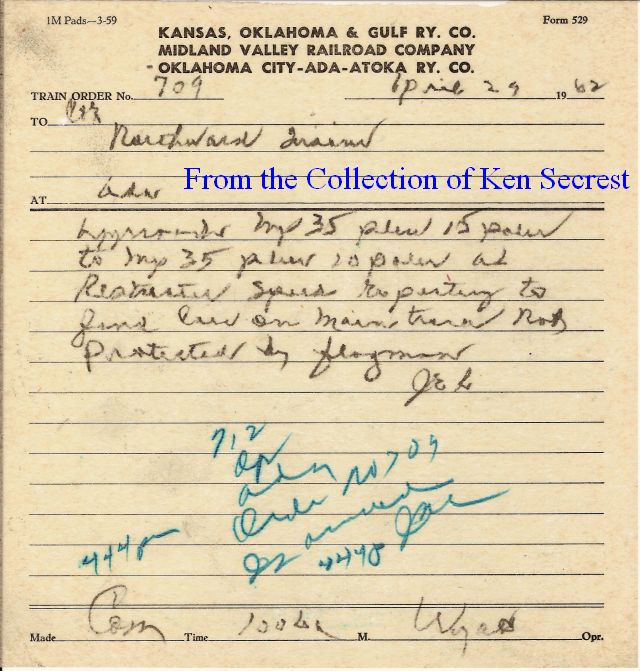 1M Pads—3-59 Form 529
KANSAS, OKLAHOMA & GULF RY. CO.
MIDLAND VALLEY RAILROAD COMPANY
OKLAHOMA CITY-ADA-ATOKA RY. CO.
TRAIN ORDER No. 709 April 29 1962
TO
Northward Trains
AT Ada From the Collection of Ken Secrest
Approach Mp 35 plus 15 poles
to Mp 35 plus 20 poles at
Restricted Speed Expecting to
find on Main track Not
Protected by flagman
712
Opr
Ada
Order No 709
Is annulled
444P 444P
Made Com Time M. Wyatt Opr.